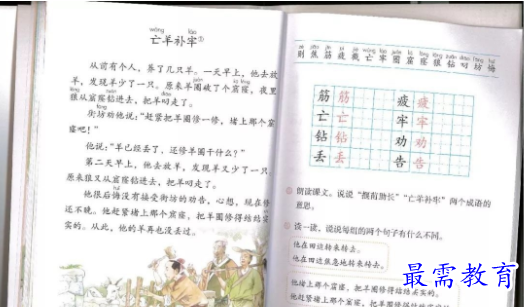 wáng láo
亡羊补牢①
从前有个人，养了几只羊。一天早上，他去放
羊，发现羊少了一只。原来羊圈破了个窟窿，夜里
狼从窟窿钻进去，把羊叼走了。
街坊劝他说：“赶紧把羊圈修一修，堵上那个窟
窿吧！”
他说：“羊已经丢了，还修羊圈干什么？”
第二天早上，他去放羊，发现羊又少了一只。
原来狼又从窟窿钻进去，把羊叼走了。
他很后悔没有接受街坊的劝告，心想，现在修
还不晚。他赶紧堵上那个窟窿，把羊圈修得结结实
实的。从此，他的羊再也没丢过。
则 焦 筋 疲 截 亡 牢 圈 窟 窿 狼 钻 叼 坊 悔
筋 筋 疲 疲
亡 亡 牢 牢
钻 钻 劝 劝
丢 丢 告 告
朗读课文。说说“揠苗助长”“亡羊补牢”两个成语的
意思。
读一读，说说每组的两个句子有什么不同。
他在田边转来转去。
他在田边焦急地转来转去。
他堵上那个窟窿，把羊圈修得结结实实的。
他赶紧堵上那个窟窿，把羊圈修得结结实
最需教育